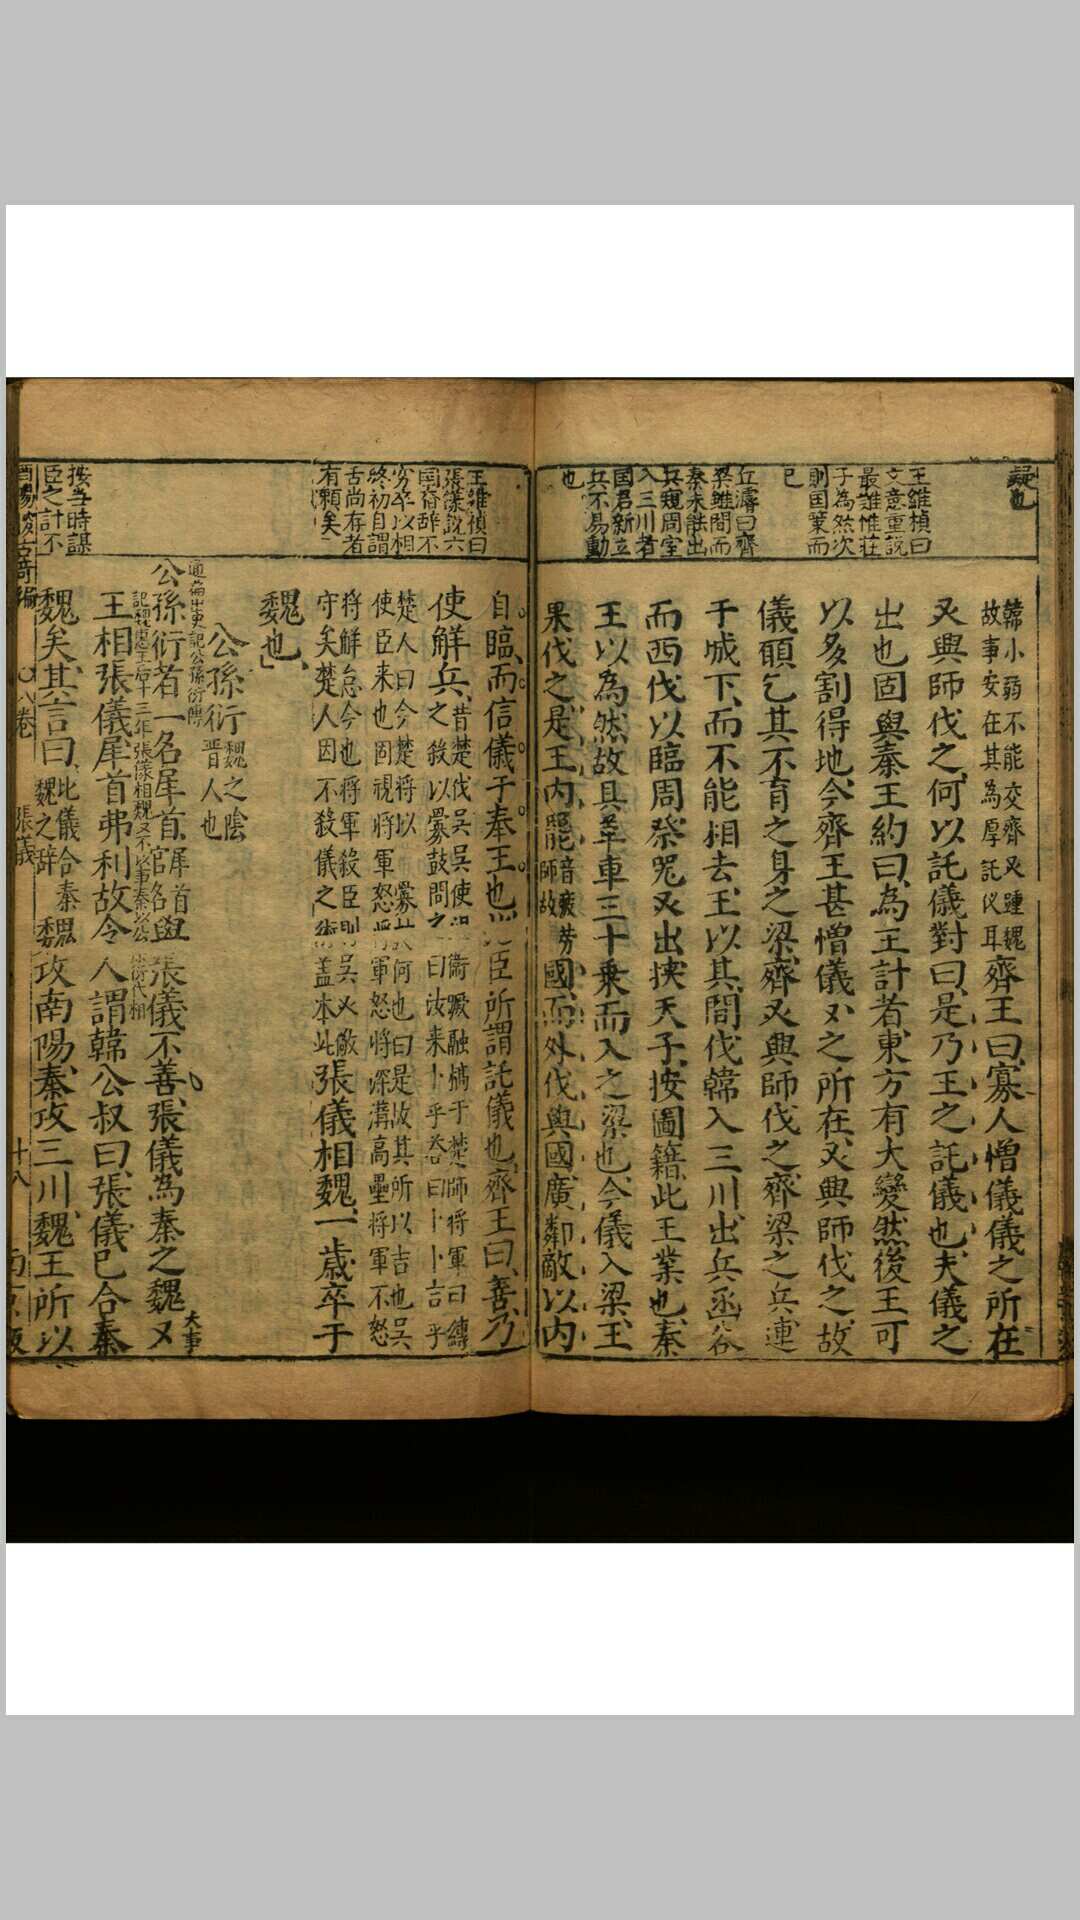 疑也
王維楨曰
文意重説
最難惟莊
子為然次
則国策而
已
丘濬曰齊
梁雖間而
秦未能出
兵窺周室
入三川者
国君新立
兵不易動
也
韓小弱不能交齊又踵魏
故事安在其為厚託仪耳
齊王曰寡人憎儀儀之所在
又興師伐之何以託儀對曰是乃王之託儀也夫儀之
出也固與秦王約曰為王計者東方有大變然後王可
以多割得地今齊王甚憎儀儀之所在必興師伐之故
儀願乞其不肖之身之梁齊必興師伐之齊梁之兵連
于城下而不能相去王以其間伐韓入三川出兵函谷
而西伐以臨周祭器必出挾天子按圖籍此王業也秦
王以為然故具革車三十乗而入之梁也今儀入梁王
果伐之是王内罷
音疲勞
師故
國而外伐與國廣鄰敵以内
王維楨曰
張儀說六
国奋辞不
穷卒以相
終初自謂
舌尚存者
有頼矣
按当時謀
臣之計不
自臨而信儀于秦王也
臣所謂託儀也齊王曰善乃
使解兵
昔楚伐吳吳使沮衛蹶融犒于楚師将軍曰縛
之殺以釁鼓問之曰汝来卜乎荅曰卜卜吉乎
楚人曰今楚将以釁
何也曰是故其所以吉也吳
使臣来也固視将軍怒将軍怒将深溝高壘将軍不怒
将解怠今也将軍殺臣則吳必儆
守矣楚人因不殺儀之術盖本此
張儀相魏一歲卒于
魏也
公孫衍
魏之陰
晋人也
公孫衍者一名犀首
犀首
官名
與張儀不善張儀為秦之魏又
大事
王相張儀犀首弗利故令人謂韓公叔曰張儀已合秦
魏矣其言曰
此儀合秦
魏之辞
魏攻南陽秦攻三川魏王所以
八卷
張儀
十八